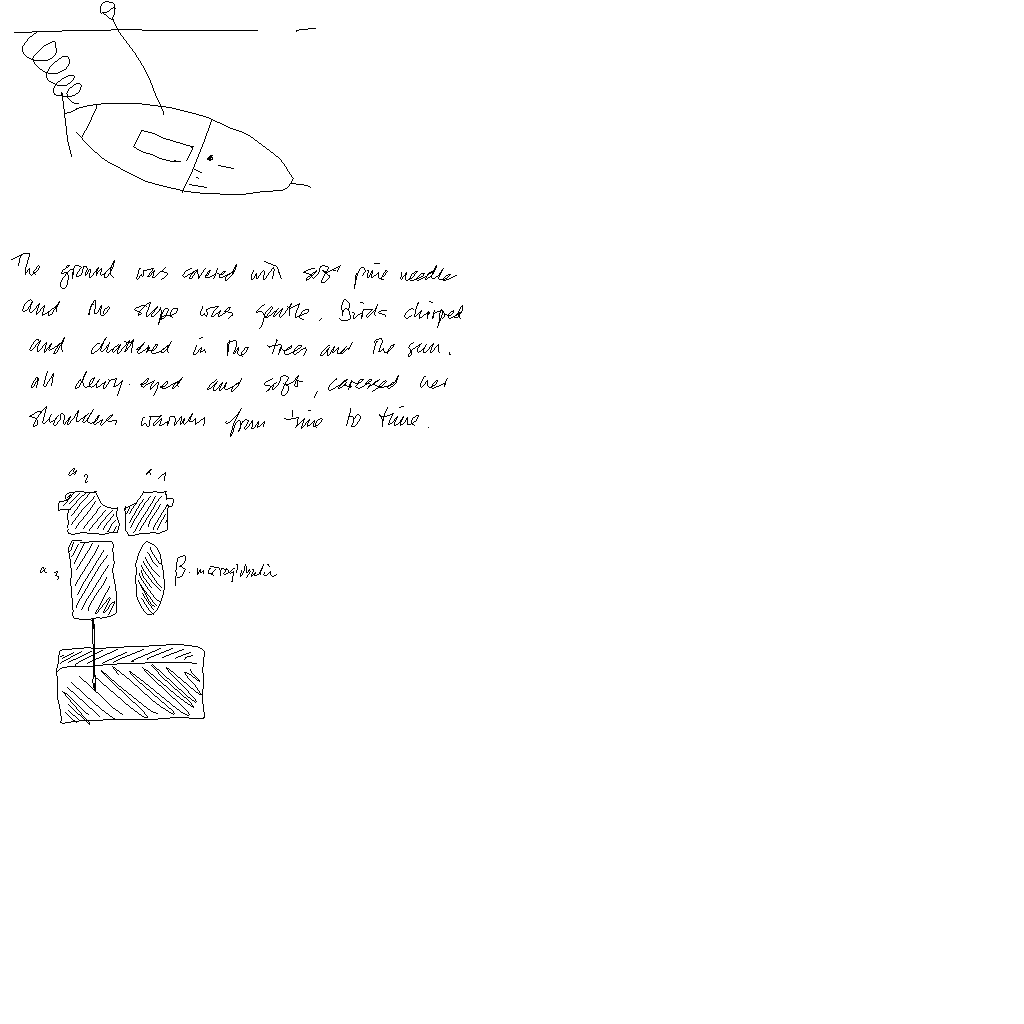 The ground was covered with soft pine needle
and the slope was gentle. Birds chirped
and chattered in the trees and the sun.
all dewy-eyed and soft, caressed her
shoulders warmer from time to time.
α2 α1
α3 β-macroglobulin